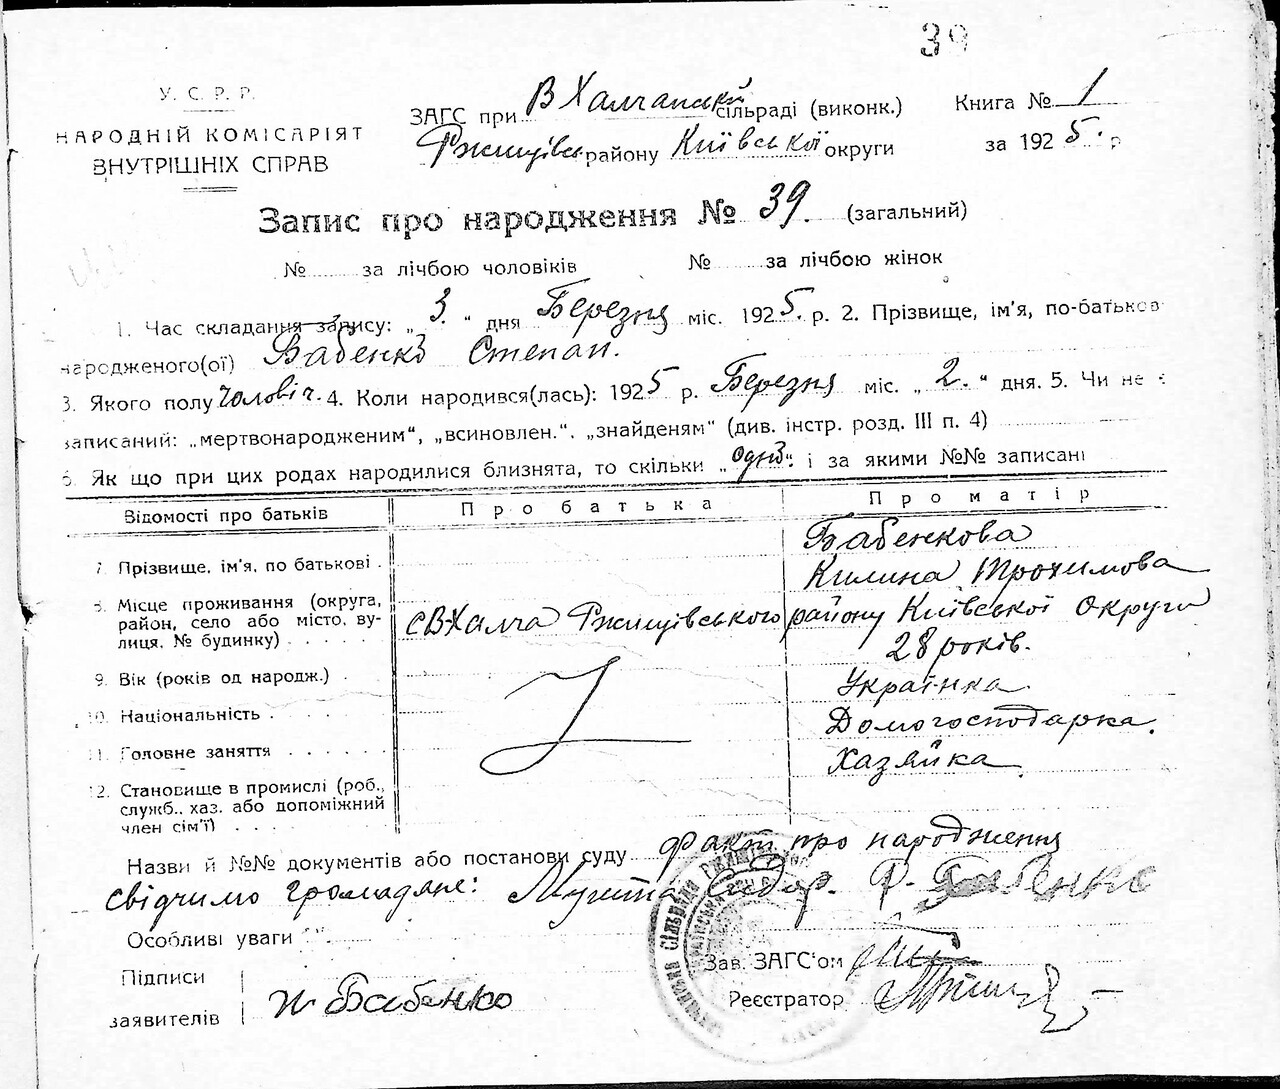 39
У. С. Р. Р.
НАРОДНІЙ КОМІСАРІЯТ
ВНУТРІШНІХ СПРАВ
ЗАГС при В Халчанській сільраді (виконк.)
Ржищівськ району Київської округи
Книга № 1
за 1925. р
Запис про народження № 39. (загальний)
№ за лічбою чоловіків № за лічбою жінок
1. Час складання запису: „ 3. “ дня Березня міс. 1925. р. 2. Прізвище, ім'я, по-батькові
народженого(ої) Бабенко Степан.
3. Якого полу чоловіч. 4. Коли народився(лась): 1925 р. Березня міс. „ 2. “ дня. 5. Чи не є
записаний: „мертвонародженим“, „всиновлен.“, „знайденям“ (див. інстр. розд. III п. 4)
6. Як що при цих родах народилися близнята, то скільки „одно“ і за якими №№ записані
Відомості про батьків Про батька Про матір
7. Прізвище, ім'я, по батькові . Бабенкова
Килина Трохимова
8. Місце проживання (округа,
район, село або місто, ву-
лиця, № будинку) с В-Халча Ржищівського району Київської Округи
9. Вік (років од народж.) . 28 років.
10. Національність Українка
11. Головне заняття Домогосподарка.
12. Становище в промислі (роб.,
служб., хаз. або допоміжний
член сім'ї) Хазяйка
Назви й №№ документів або постанови суду факт про народження
свідчимо громадяне: Ф. Бабенко
Особливі уваги “ ”.
Підписи
заявителів К Бабенко
Зав. ЗАГС'ом
Реєстратор